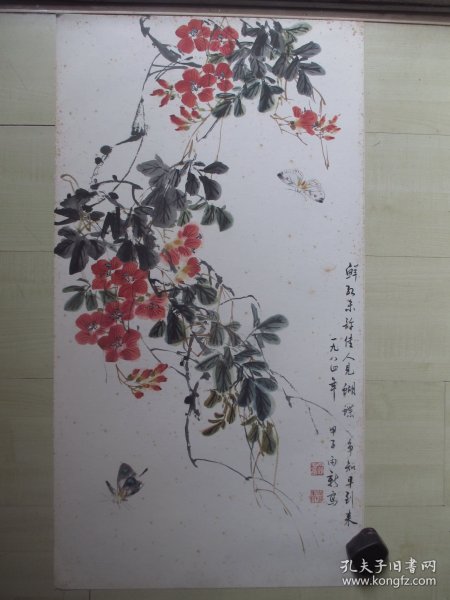 鲜红未许佳人见蝴蝶争知早到来
一九八四年
甲子雨新写
孔夫子旧书网
www.kongfz.com